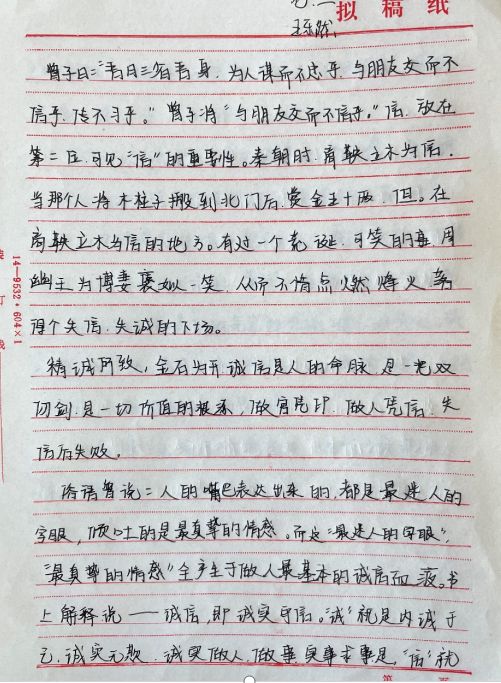 拟稿纸
曾子曰:“吾日三省吾身,为人谋而不忠乎,与朋友交而不
信乎,传不习乎。”曾子将“与朋友交而不信乎。”信,放在
第二位,可见“信”的重要性。秦朝时,商鞅立木为信,
当那个人将木柱子搬到北门后,赏金五十两,但。在
商鞅立木为信的地方。有过一个荒诞,可笑的事,周
幽王为博妻褒姒一笑,从而不惜点燃烽火,落
得个失信,失诚的下场。
精诚所致,金石为开,诚信是人的命脉,是一把双
刃剑,是一切价值的根系,做官凭印,做人凭信,失
信后失败。
俗语曾说:人的嘴巴表达出来的,都是最迷人的
字眼,倾吐的是最真挚的情感。而这“最迷人的字眼”,
“最真挚的情感”全产生于做人最基本的诚信而 。书
上解释说——诚信,即诚实守信。“诚”就是内诚于
己,诚实无欺,诚实做人,做事,实事求事是,“信”就
14—9532·604×1